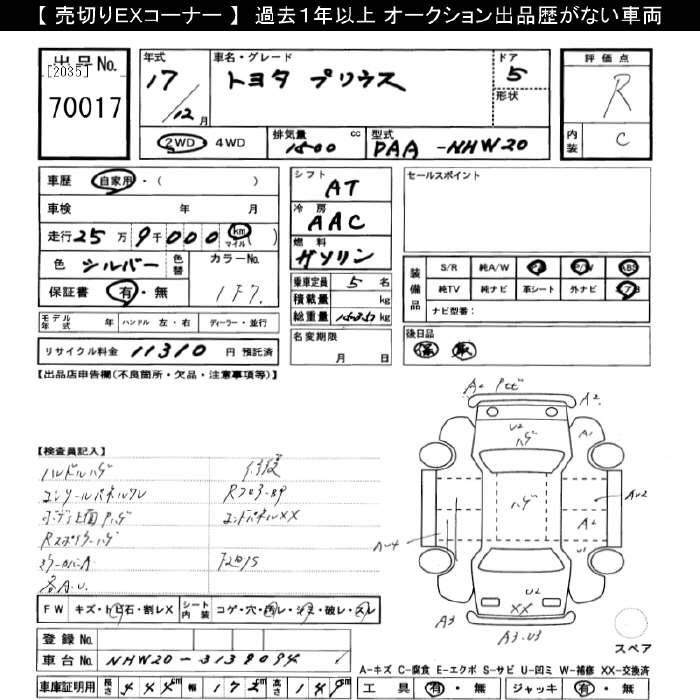 【 売切りEXコーナー 】 過去1年以上 オークション出品歴がない車両
出品No.
[2035]
70017
年式
17
/12月
車名・グレード
トヨタ プリウス
ドア
5
形状
評価点
R
内装
C
2WD・4WD
排気量 cc
1500
型式
DAA -NHW20
車歴 自家用・( )
車検 年 月
走行 25万 9千000 km マイル ( )
色 シルバー 色替 カラーNo.
1F7.
保証書 有・無
モデル年式 年 ハンドル 左・右 ディーラー・並行
リサイクル料金 11310 円 預託済
シフト
AT
冷房
AAC
燃料
ガソリン
乗車定員 5 名
積載量 kg
総重量 kg
名変期限
月 日
セールスポイント
装備品
S/R 純A/W P/S P/W ABS
純TV 純ナビ 革シート 外ナビ
ナビ型番:
後日品
保 取
【出品店申告欄(不良箇所・欠品・注意事項等)】
【検査員記入】
ハンドルハゲ
修復
コンソールパネルワレ
ボディ上面Pハゲ
エンドパネルXX
Rスポイラーハゲ
各A.U.
A2
A2
U2
ハゲ
A1
ハゲ
AU2
A2
AU4
U1
U2
XX
A3
A3-U3
スペア
FW キズ・トビ石・割レX シート内装 コゲ・穴・切レ・シミ・破レ・スレ
登録No.
車台No. NHW20-3138094
車庫証明用 長さ 444cm 幅 172cm 高さ 149cm
A-キズ C-腐食 E-エクボ S-サビ U-凹ミ W-補修 XX-交換済
工具 有・無 ジャッキ 有・無